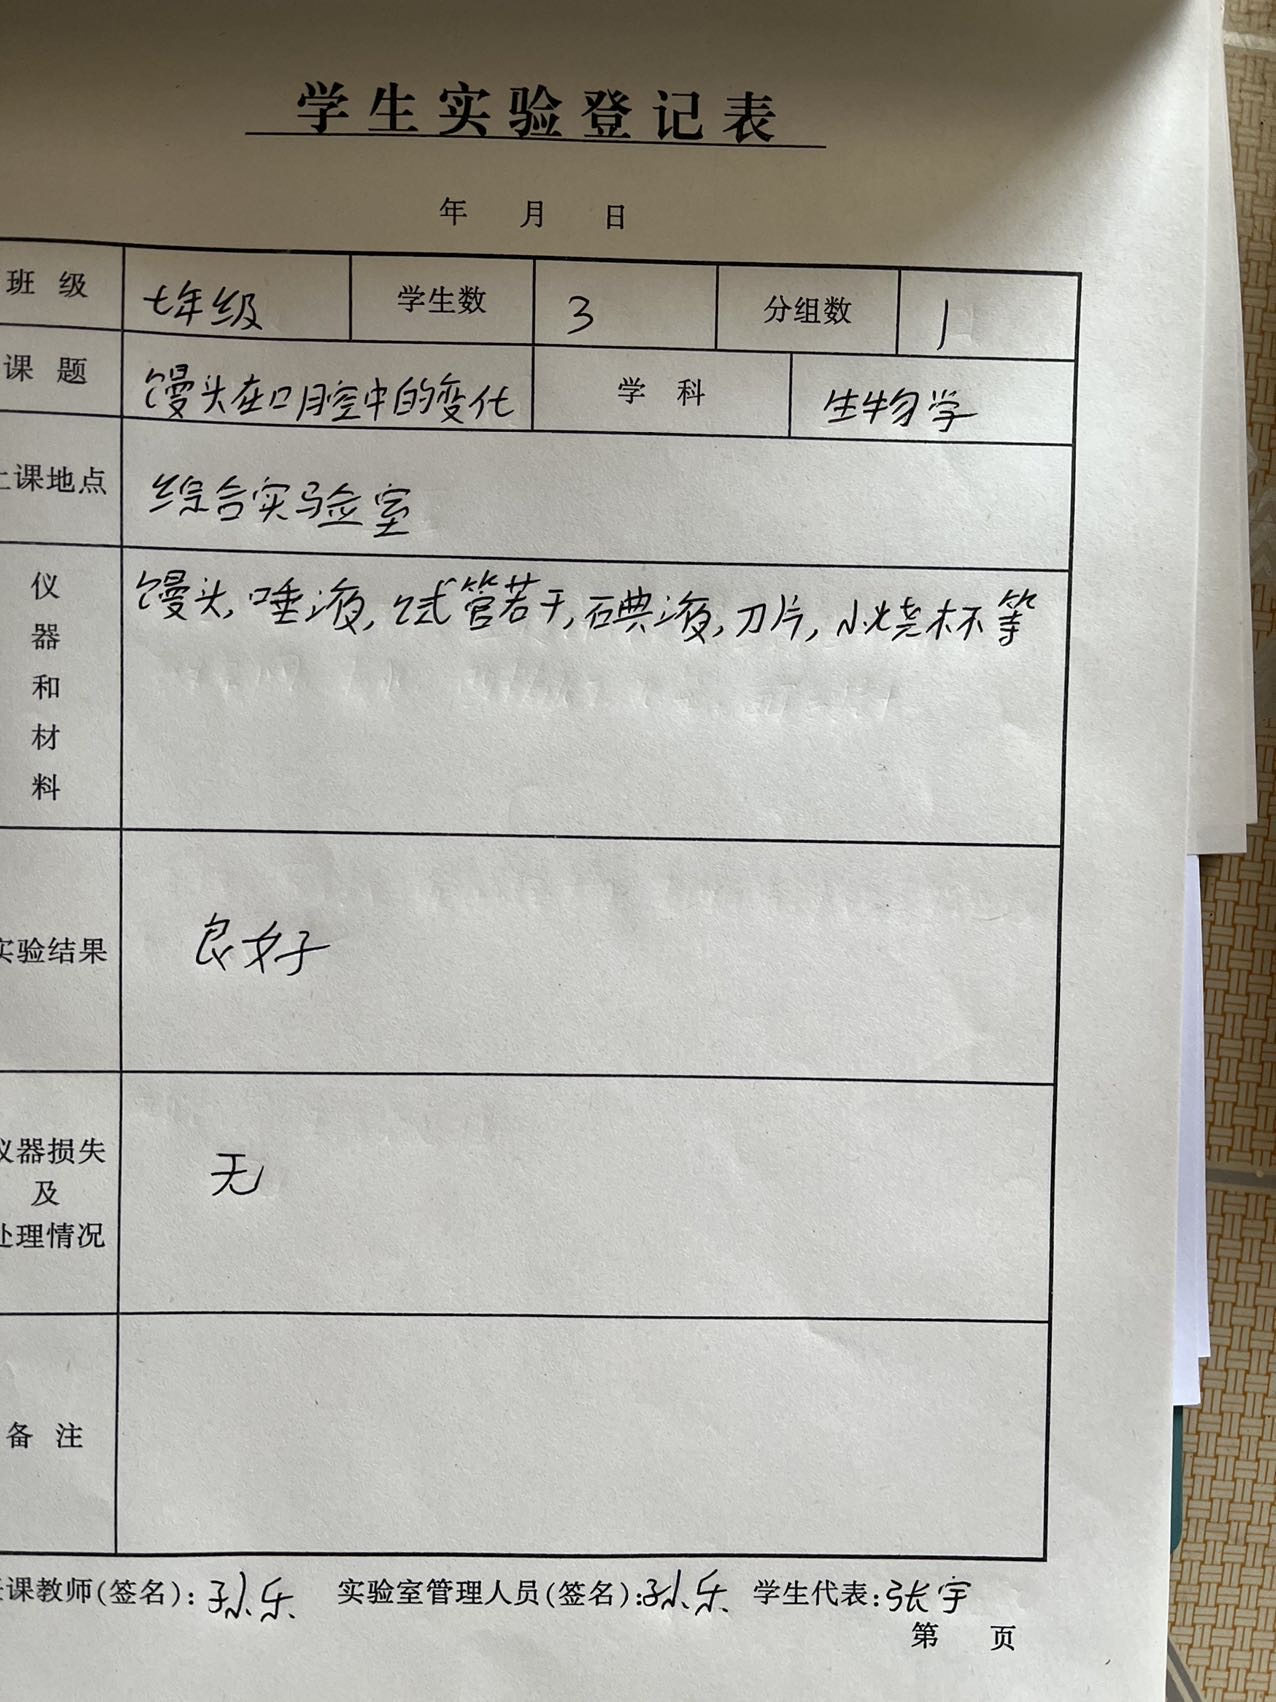 学生实验登记表
年 月 日
班 级 七年级 学生数 3 分组数 1
课 题 馒头在口腔中的变化 学 科 生物学
上课地点 综合实验室
仪器和材料 馒头, 唾液, 试管若干, 碘液, 刀片, 小烧杯等
实验结果 良好
仪器损失
及
处理情况 无
备 注
课教师(签名): 孙乐 实验室管理人员(签名): 孙乐 学生代表: 张宇
第 页